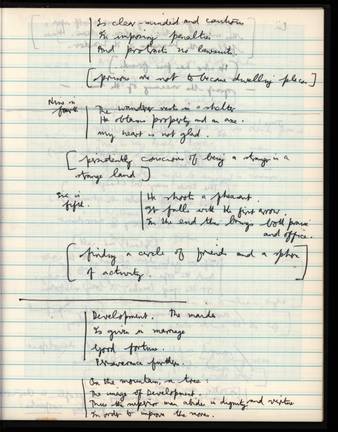 Is clear-minded and cautious
In imposing penalties
And protracts no lawsuits
[prisons are not to become dwelling places]
Nine in fourth
The wanderer rests in a shelter
He obtains property and an axe.
my heart is not glad.
[persistently conscious of being a stranger in a
strange land]
Six in fifth.
He shoots a pheasant.
It falls with the first arrow.
In the end this brings both praise
and office.
[finding a circle of friends and a sphere
of activity.]
Development. The maiden
Is given in marriage
Good fortune.
Perseverance furthers.
On the mountain, a tree:
The image of Development.
Thus the superior man abides in dignity and virtue
In order to improve the mores.